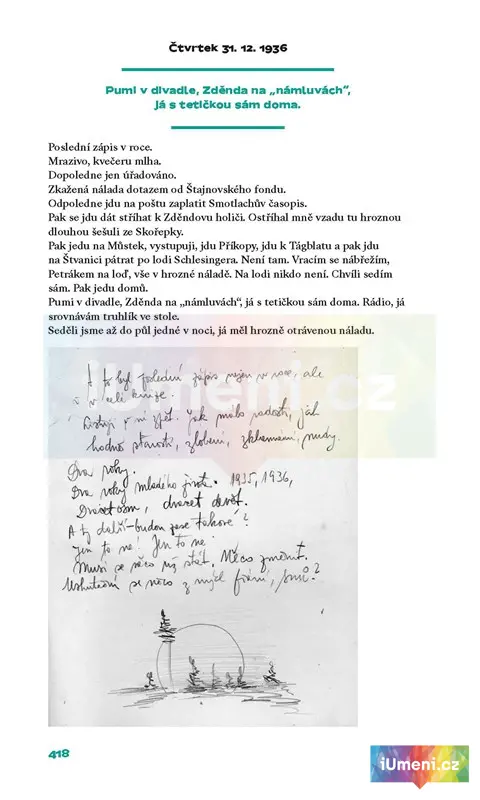 Čtvrtek 31. 12. 1936
Pumi v divadle, Zděnda na „námluvách“,
já s tetičkou sám doma.
Poslední zápis v roce.
Mrazivo, kvečeru mlha.
Dopoledne jen úřadováno.
Zkažená nálada dotazem od Štajnovského fondu.
Odpoledne jdu na poštu zaplatit Smotlachův časopis.
Pak se jdu dát stříhat k Zděndovu holiči. Ostříhal mně vzadu tu hroznou
dlouhou šešuli ze Skořepky.
Pak jedu na Můstek, vystupuji, jdu Příkopy, jdu k Tágblatu a pak jdu
na Štvanici pátrat po lodi Schlesingera. Není tam. Vracím se nábřežím,
Petrákem na loď, vše v hrozné náladě. Na lodi nikdo není. Chvíli sedím
sám. Pak jedu domů.
Pumi v divadle, Zděnda na „námluvách“, já s tetičkou sám doma. Rádio, já
srovnávám truhlík ve stole.
Seděli jsme až do půl jedné v noci, já měl hrozně otrávenou náladu.
A to byl poslední zápis nejen v roce, ale
i v celé knize.
Listuji v ní zpět. Jak málo radosti, jak
hodně starostí, zlobení, zklamání, nudy.
Dva roky.
Dva roky mladého života. 1935, 1936,
Dvacet osm, dvacet devět.
A ty další – budou zase takové?
Jen to ne! Jen to ne!
Musí se něco už stát. Něco změnit.
Uskuteční se něco z mých
iUmeni.cz
418
iUmeni.cz